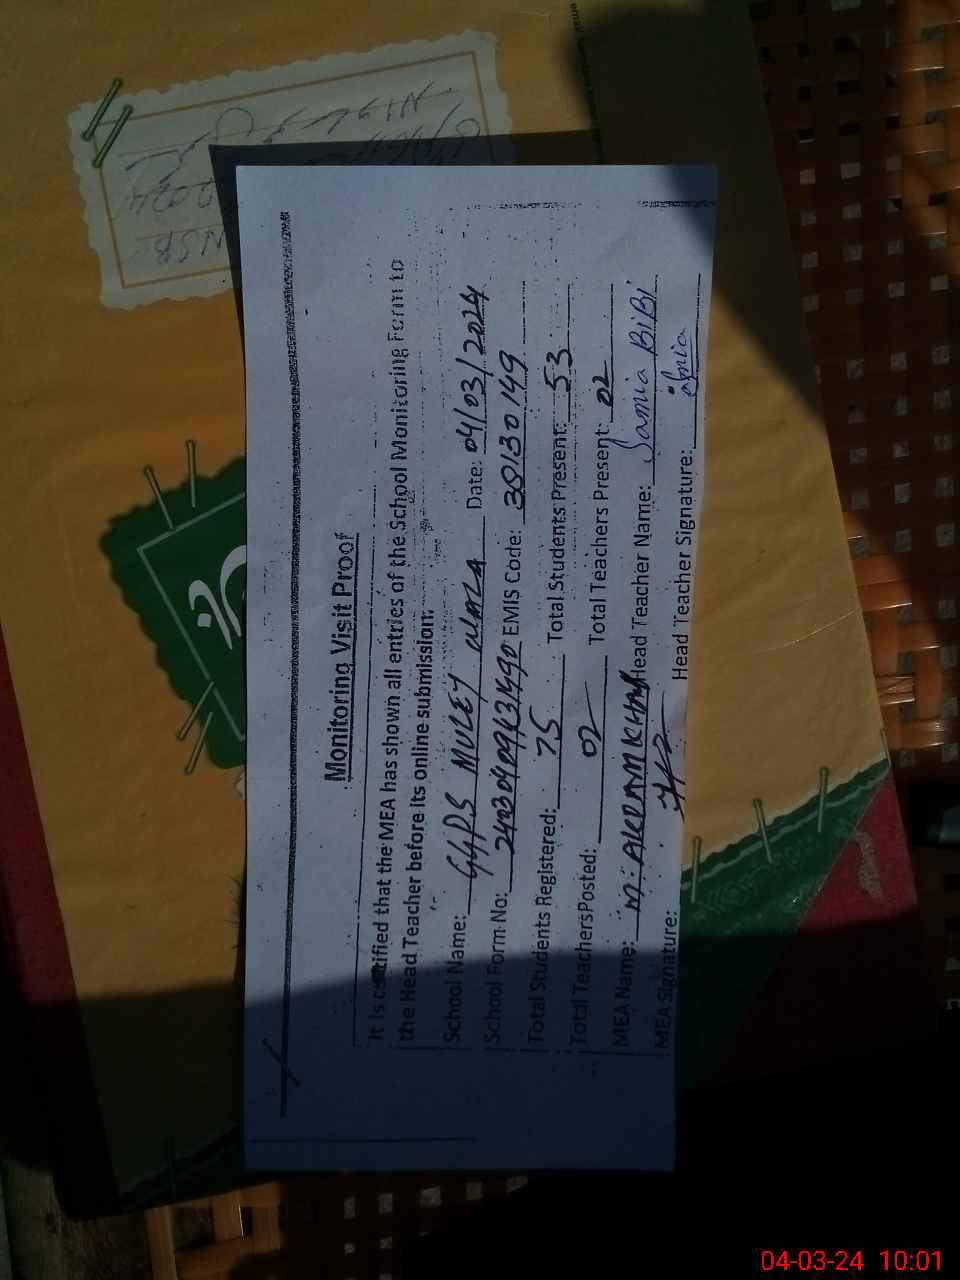 Monitoring Visit Proof
It is certified that the MEA has shown all entries of the School Monitoring Form to
the Head Teacher before its online submission.
School Name: GGPS MULEY WALA Date: 04/03/2024
School Form No: EMIS Code: 38130149
Total Students Registered: 75 Total Students Present: 53
Total Teachers Posted: 02 Total Teachers Present: 02
MEA Name: M. AKRAM KHAN Head Teacher Name: Samia BiBi
MEA Signature: Head Teacher Signature:
04-03-24 10:01